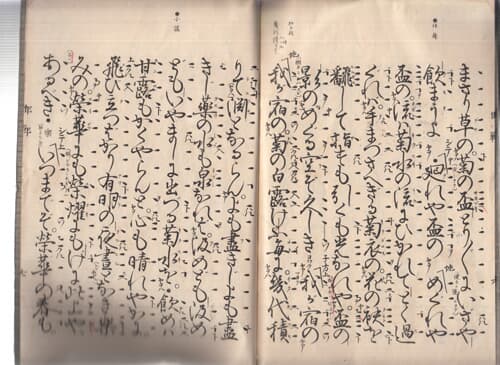 まさり草の菊の盃とり〴〵にいざや
飲まうよ 廻れや盃の めぐれや
盃の流は菊水の流にひかれてとく過
ぐれば手まづさへぎる菊衣の花の袂を
翻して指すも引くも光なれや盃の
景のめぐる空ぞ久しき 我が宿の
我が宿の菊の白露けふ毎に幾代積
●小謠
りて淵となるらんよも盡きじよも盡
きじ藥の水も泉なれば汲めども汲め
どもいやましに出づる菊水を飲めば
甘露もかくやらんと心も晴れやかに
飛び立つばかり有明の夜晝となき樂
みの榮華にも榮耀にもげに此上や
あるべき いつまでぞ榮華の春も